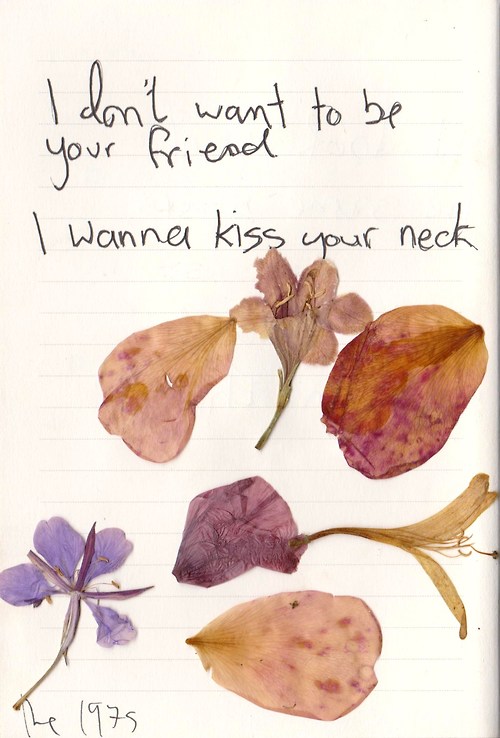 I don't want to be
your friend
I wanna kiss your neck
The 1975